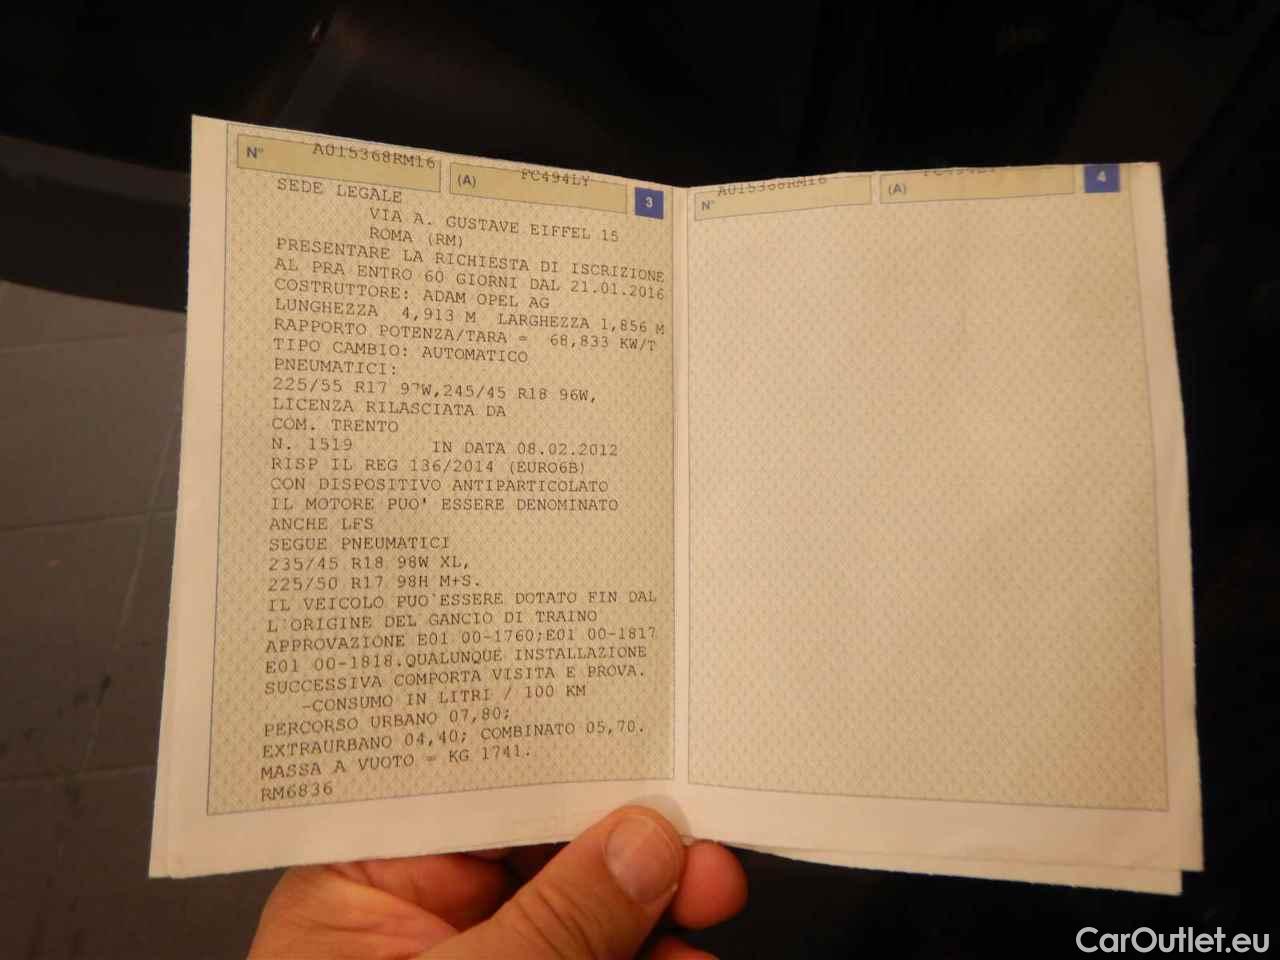 N° A015368RM16
(A) FC494LY
3
SEDE LEGALE
VIA A. GUSTAVE EIFFEL 15
ROMA (RM)
PRESENTARE LA RICHIESTA DI ISCRIZIONE
AL PRA ENTRO 60 GIORNI DAL 21.01.2016
COSTRUTTORE: ADAM OPEL AG
LUNGHEZZA 4,913 M LARGHEZZA 1,856 M
RAPPORTO POTENZA/TARA = 68,833 KW/T
TIPO CAMBIO: AUTOMATICO
PNEUMATICI:
225/55 R17 97W,245/45 R18 96W,
LICENZA RILASCIATA DA
COM. TRENTO
N. 1519 IN DATA 08.02.2012
RISP IL REG 136/2014 (EURO6B)
CON DISPOSITIVO ANTIPARTICOLATO
IL MOTORE PUO' ESSERE DENOMINATO
ANCHE LFS
SEGUE PNEUMATICI
235/45 R18 98W XL,
225/50 R17 98H M+S.
IL VEICOLO PUO`ESSERE DOTATO FIN DAL
L`ORIGINE DEL GANCIO DI TRAINO
APPROVAZIONE E01 00-1760;E01 00-1817
E01 00-1818.QUALUNQUE INSTALLAZIONE
SUCCESSIVA COMPORTA VISITA E PROVA.
-CONSUMO IN LITRI / 100 KM
PERCORSO URBANO 07,80;
EXTRAURBANO 04,40; COMBINATO 05,70.
MASSA A VUOTO = KG 1741.
RM6836
N° A015368RM16
(A) FC494LY
4
CarOutlet.eu